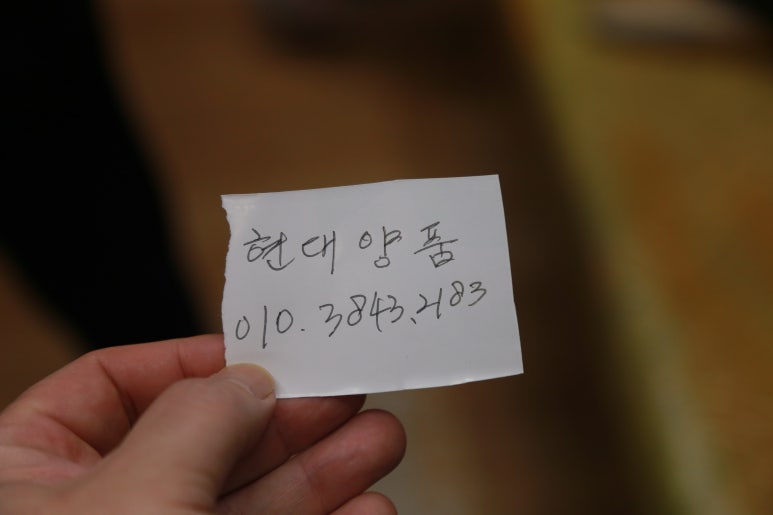 현대양품
010.3843.2183